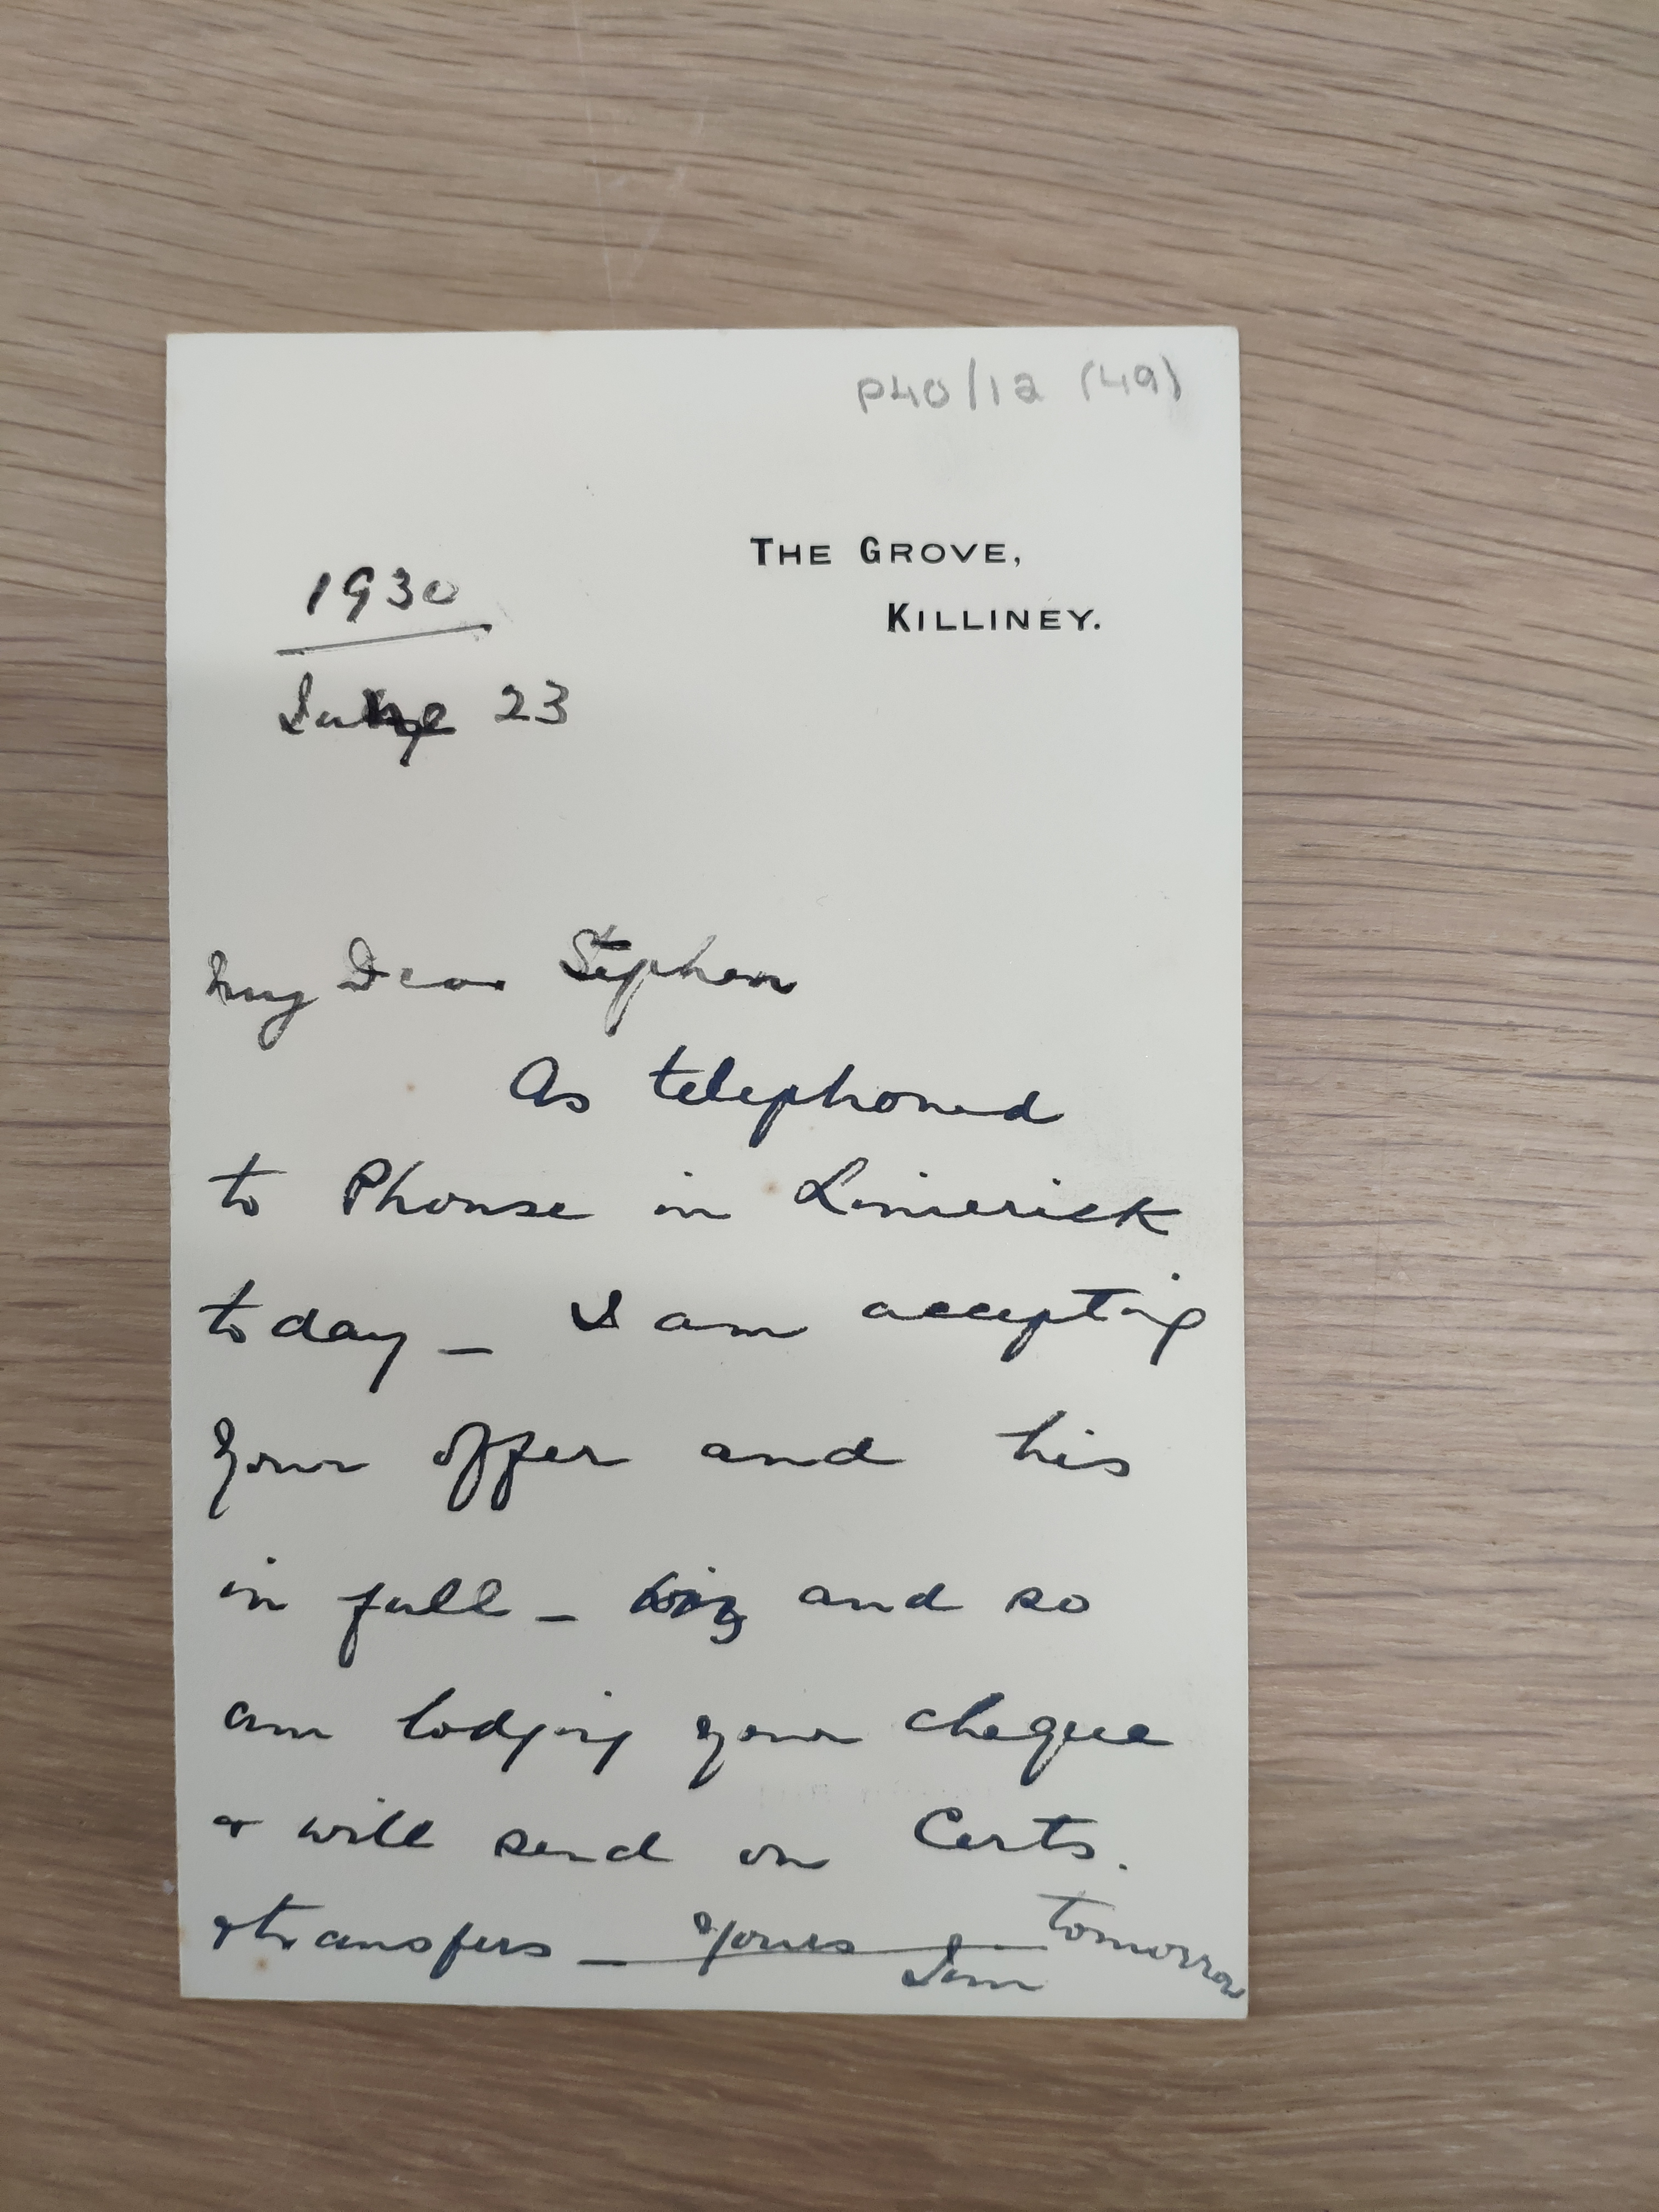 P40/12 (49)
THE GROVE,
KILLINEY.
1930
June 23
My Dear Stephen
As telephoned
to Phonse in Limerick
today _ I am accepting
your offer and his
in full _ and so
am lodging your cheque
& will send on Certs.
& transfers _ Yours _ tomorrow
Jim